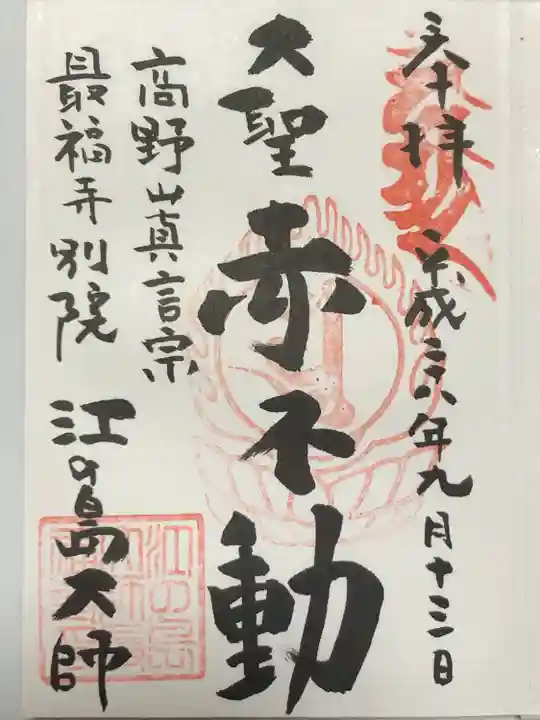 奉拝 平成二八年九月十三日
大聖赤不動
高野山真言宗
最福寺別院 江の島大師
江の島